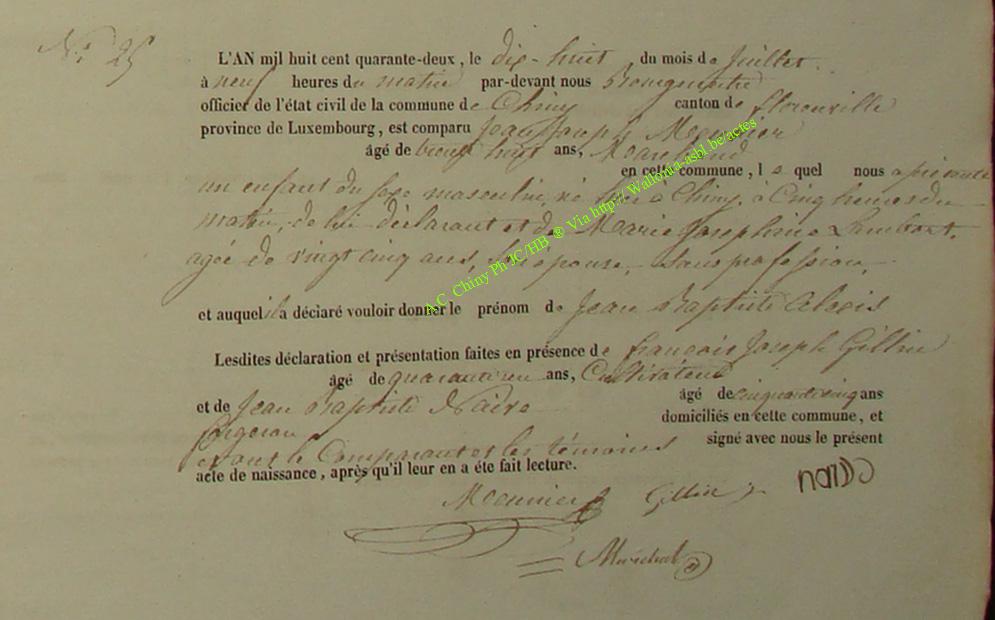 N.° 25
L'AN mil huit cent quarante-deux, le dix-huit du mois de Juillet.
à neuf heures du matin par-devant nous Bourgmestre
officier de l'état civil de la commune de Chiny canton de florenville
province de Luxembourg, est comparu Jean Joseph Meunier
âgé de huit ans, Marchand
en cette commune, le quel nous a présenté
un enfant du sexe masculin, né hier à Chiny, à Cinq heures du
matin, de lui déclarant et de Marie Josephine Lambert.
agée de vingt cinq ans, son épouse, sans profession,
et auquel il a déclaré vouloir donner le prénom de Jean Baptiste Alexis
Lesdites déclaration et présentation faites en présence de françois Joseph Gillin
âgé de quarante un ans, Cultivateur
et de Jean Baptiste âgé de cinquante cinq ans
forgeron domiciliés en cette commune, et
et ont le Comparant et les témoins signé avec nous le présent
acte de naissance, après qu'il leur en a éte fait lecture.
Meunier Gillin
Maréchal
A.C. Chiny Ph JC/HB ® Via http:// Wallonia-asbl.be/actes